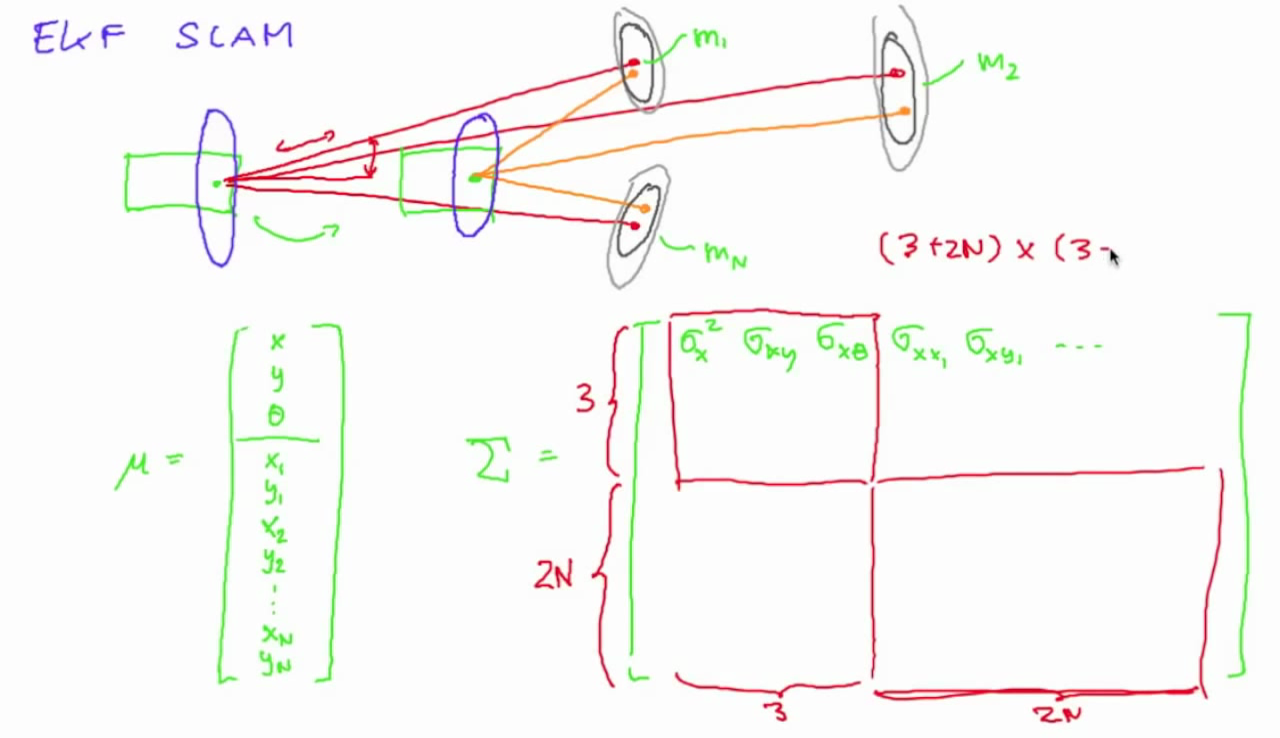 EKF SLAM
m₁
m₂
m_N
(3+2N) x (3-
μ =
x
y
θ
x₁
y₁
x₂
y₂
⋮
x_N
y_N
Σ =
σ_x² σ_xy σ_xθ σ_xx₁ σ_xy₁ ---
3
2N
3
2N